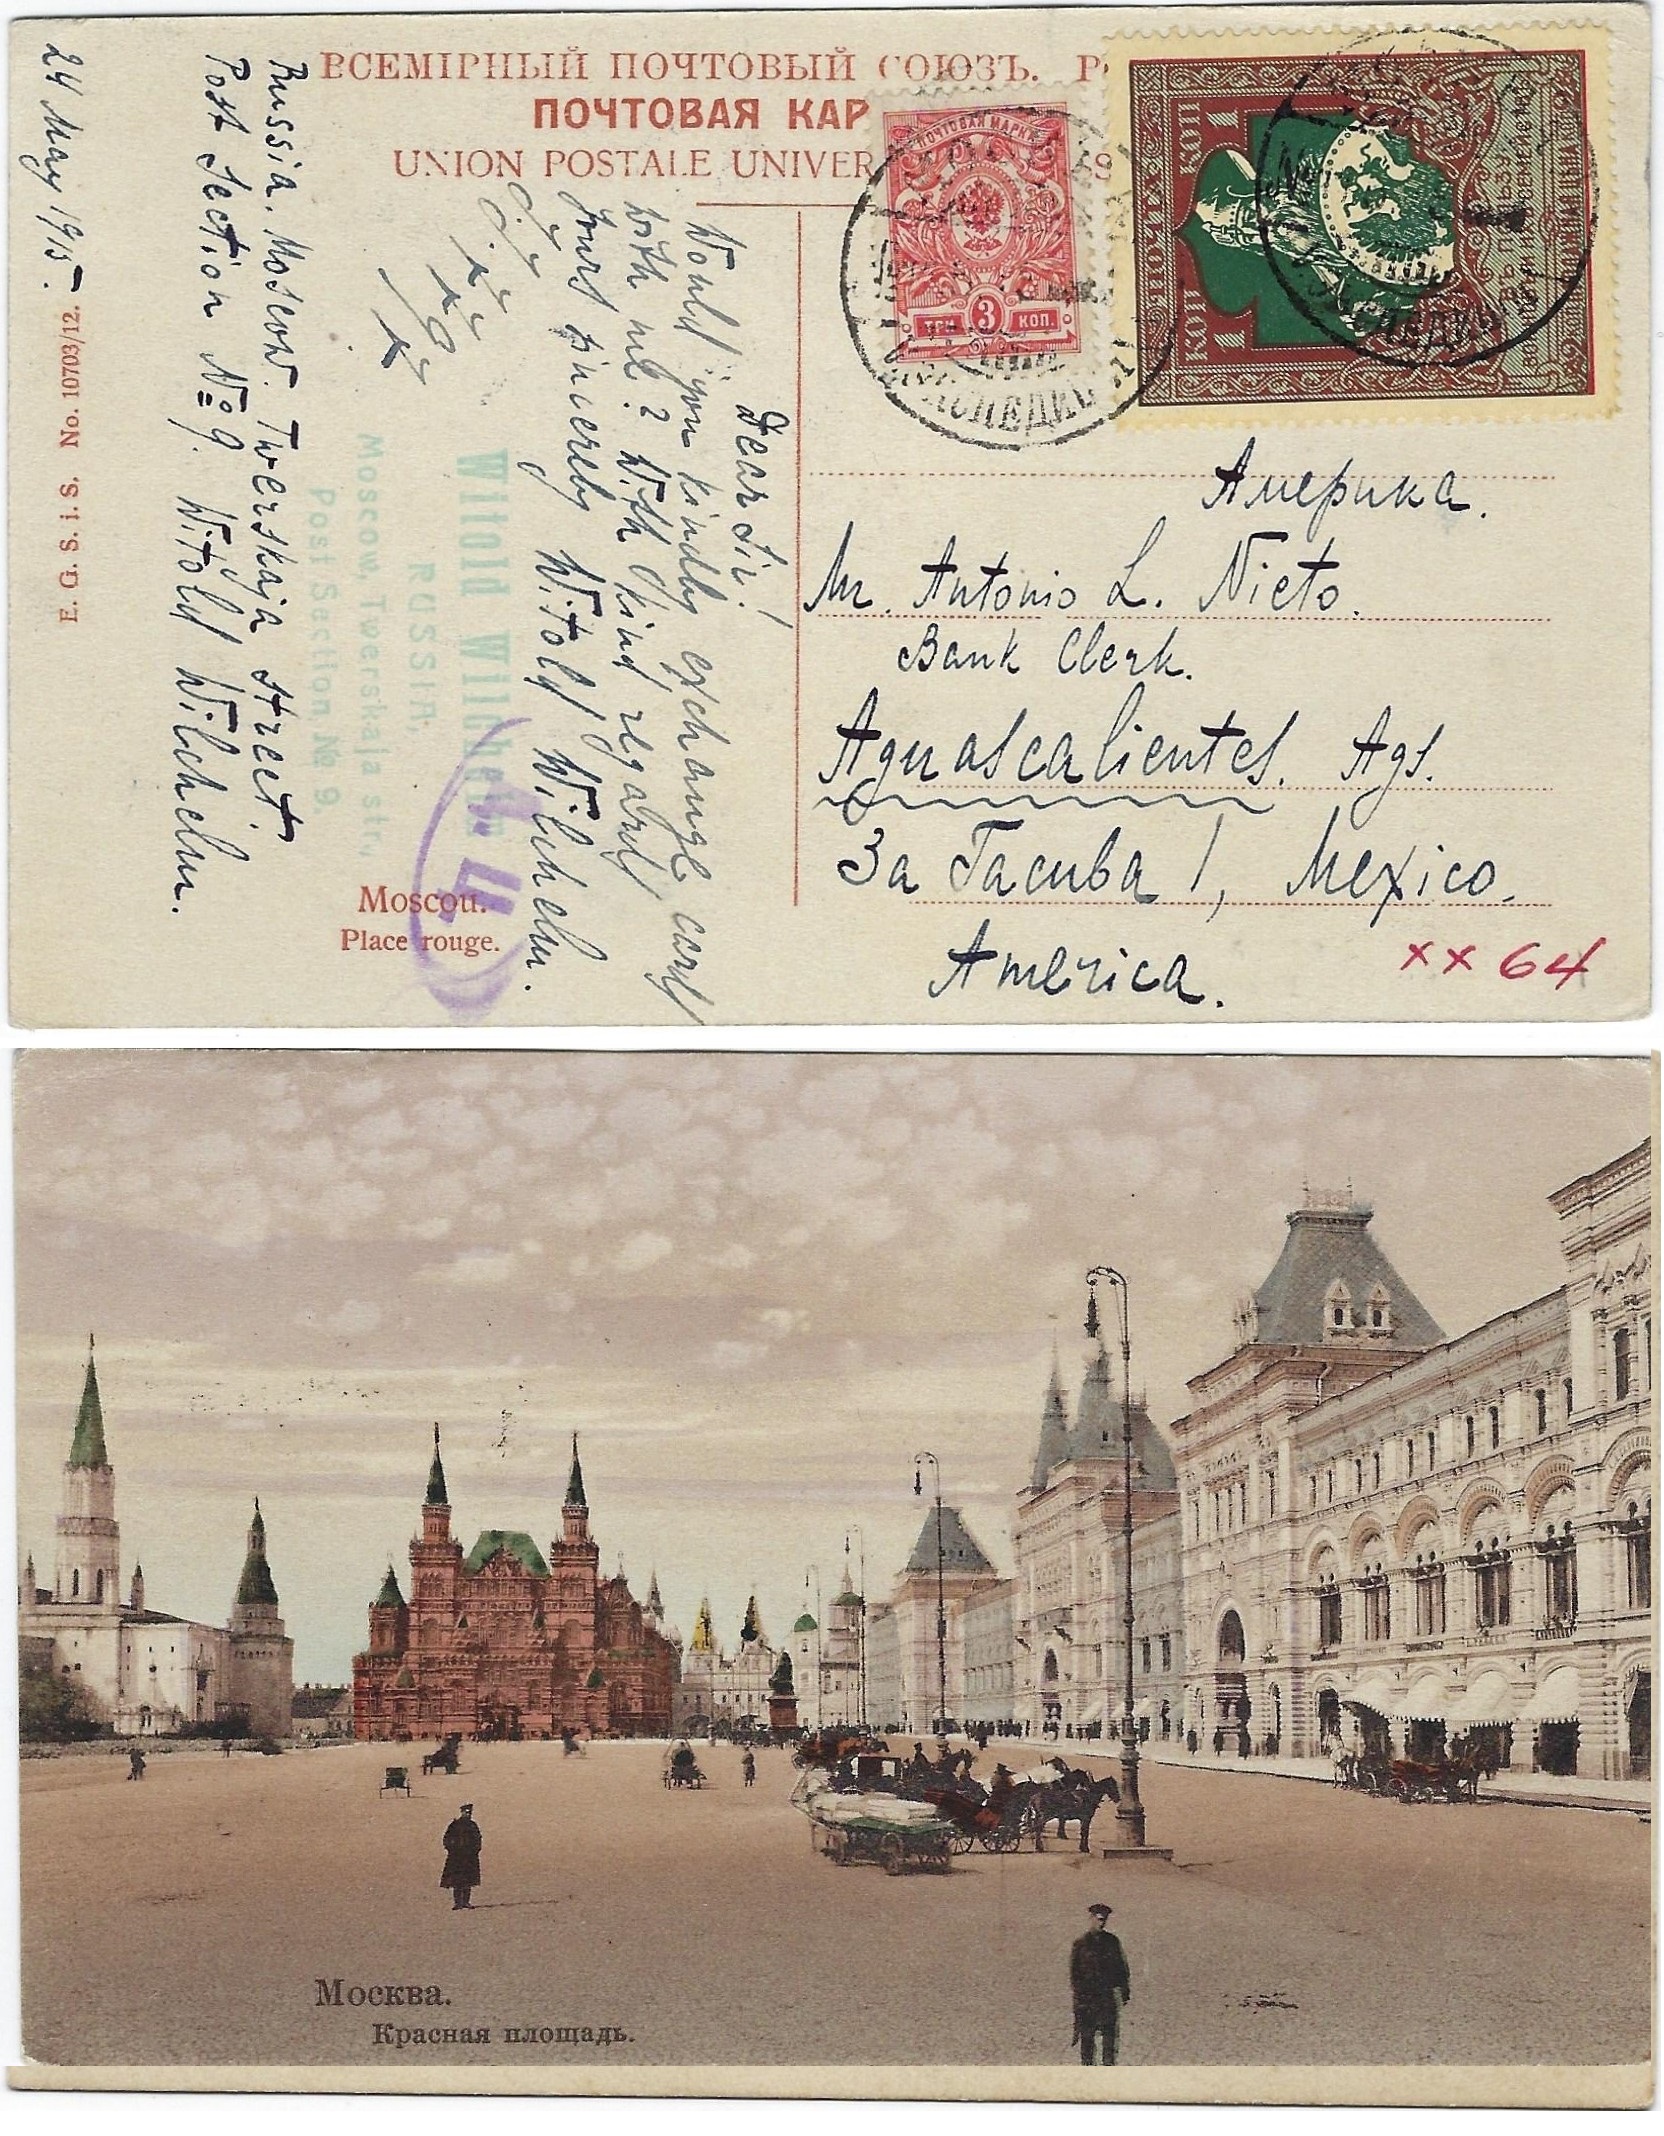 ВСЕМІРНЫЙ ПОЧТОВЫЙ СОЮЗЪ.
ПОЧТОВАЯ КАР
UNION POSTALE UNIVER
ПОЧТОВАЯ МАРКА
3
ТРИ КОП.
1 КОП
1 КОП
ПОЧТА
24 May 1915.
Russia. Moscow. Twerskaja street.
Post Section №9. Witold Wilchelm.
Dear Sir!
Would you kindly exchange card
with me? With kind regards
Yours sincereby Witold Wilchelm.
Witold Wilchelm
RUSSIA,
Moscow, Twerskaja str,
Post Section, № 9.
E. G. S. i. S. No. 10703/12.
Moscou.
Place rouge.
Америка.
Mr. Antonio L. Nieto.
Bank Clerk.
Aguascalientes. Ags.
3a Tacuba 1, Mexico,
America.
xx 64
Москва.
Красная площадь.